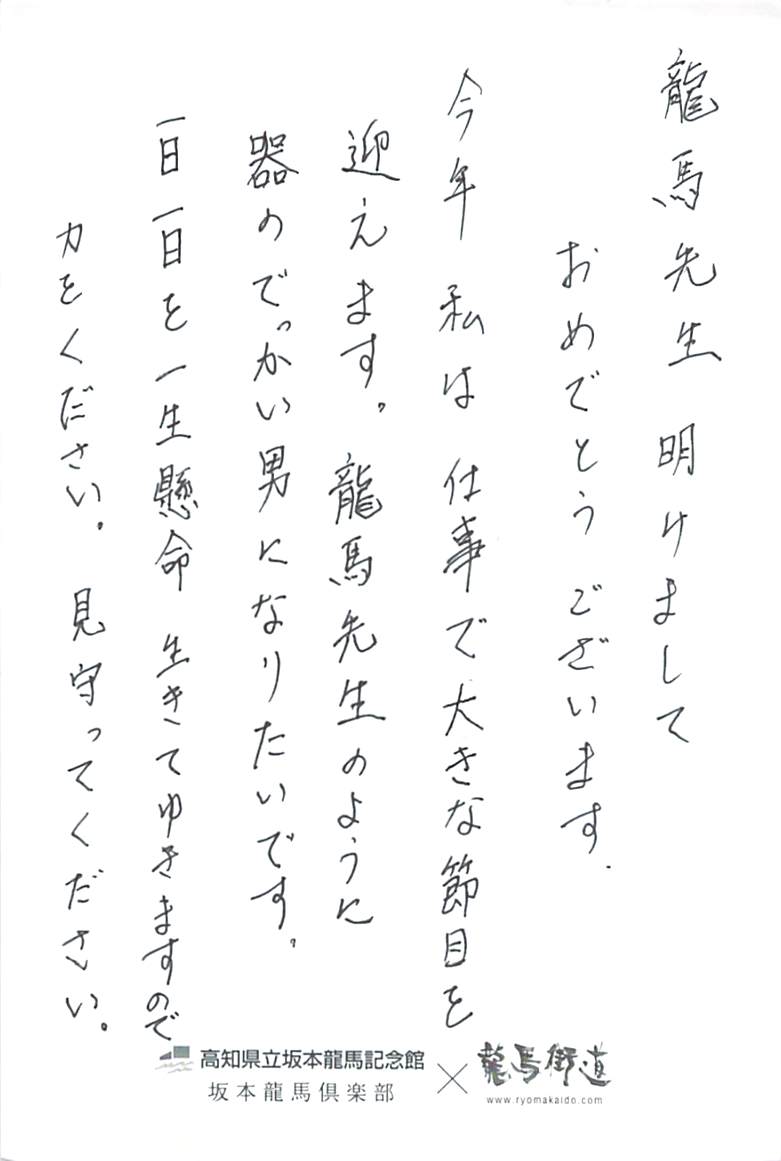 龍馬先生 明けまして
おめでとうございます.
今年 私は 仕事で大きな節目を
迎えます。龍馬先生のように
器のでっかい男になりたいです。
一日一日を一生懸命 生きてゆきますので
力をください。見守ってください。
高知県立坂本龍馬記念館
坂本龍馬倶楽部
×
龍馬街道
www.ryomakaido.com